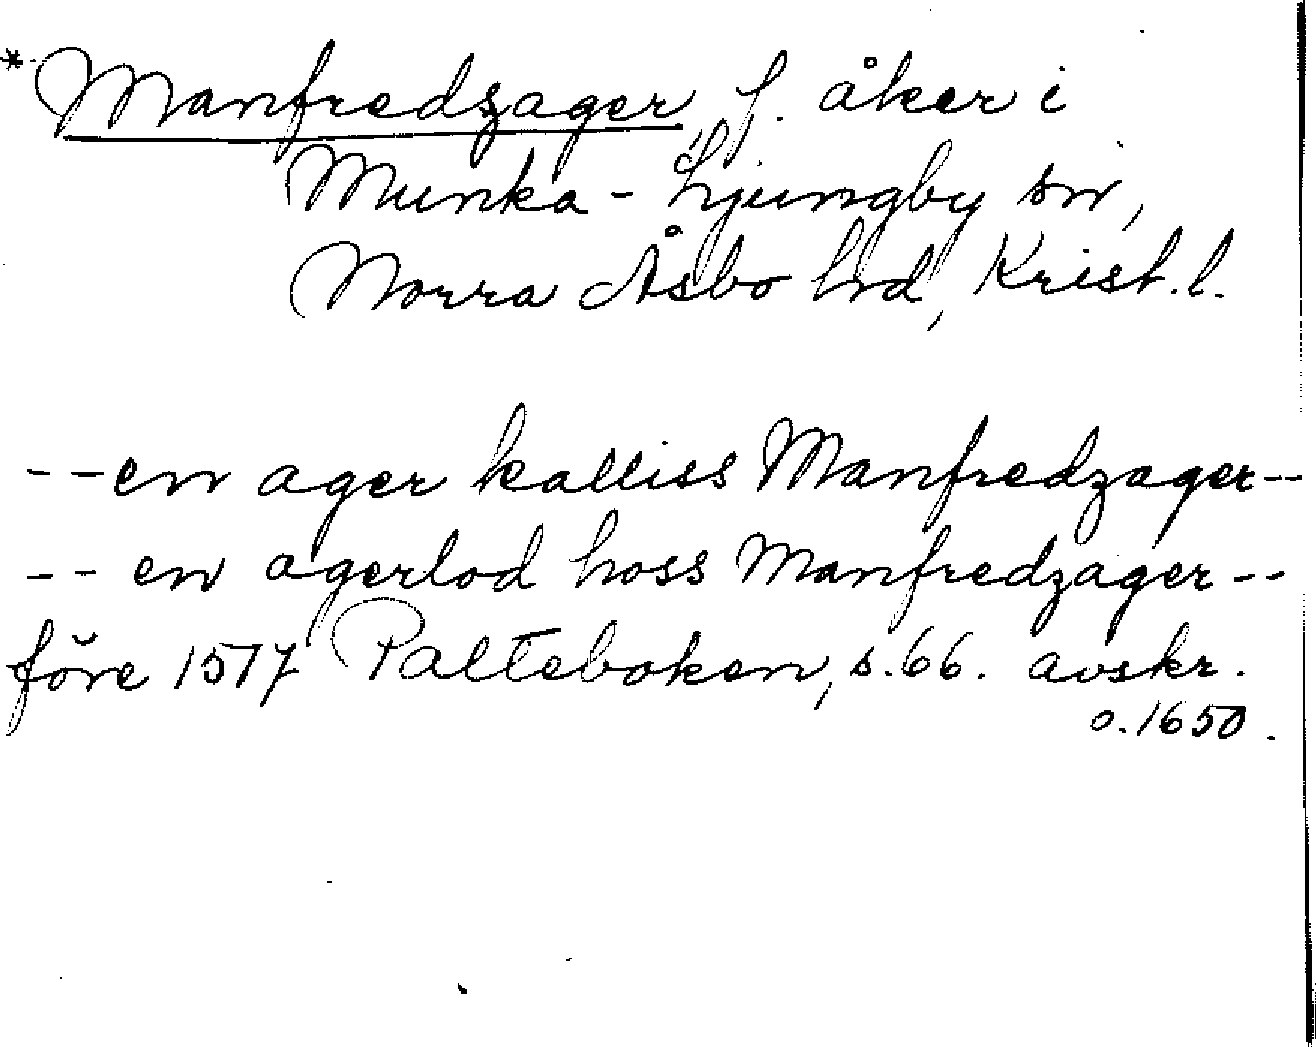 * Manfredzager, f. åker i
Munka-Ljungby sn,
Norra Åsbo hd, Krist. l.
--en ager kalliss Manfredzager--
-- en agerlod hoss Manfredzager--
före 1577 Palteboken, s. 66. avskr.
o. 1650.